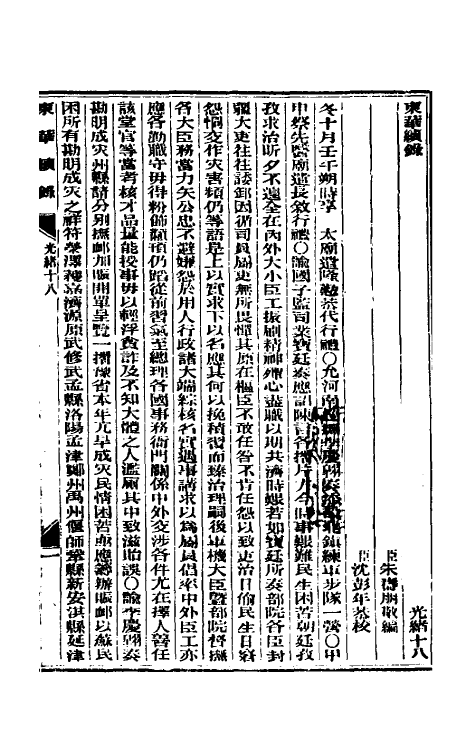 東華續錄
光緒十八
臣朱壽朋敬編
臣沈彭年恭校
冬十月壬午朔時享　太廟遣隆懃恭代行禮○允河南巡撫李慶翱奏添練軍步隊一營○甲
申祭先醫廟遣長敘行禮○諭國子監司業寶廷奏應詔陳言各摺片方今時事艱難民生困苦朝廷孜
孜求治昕夕不遑全在內外大小臣工振刷精神殫心盡職以期共濟時艱若如寶廷所奏部院各臣封
疆大吏往往諉卸因循司員屬吏無所畏憚其原在樞臣不敢任咎不肯任怨以致吏治日偷民生日窘
怨恫交作灾害頻仍等語是上以實求下以名應其何以挽積習而臻治理嗣後軍機大臣暨部院督撫
各大臣務當力矢公忠不避嫌怨於用人行政諸大端綜核名實遇事講求以為屬員倡率中外臣工亦
應各勤職守毋得粉飾顢頇仍蹈從前習氣至總理各國事務衙門關係中外交涉各件尤在擇人營任
該堂官等當考核才品量能授事毋以輕浮貪詐及不知大體之人濫廁其中致滋貽誤○諭李慶翱奏
勘明成灾州縣請分別撫䘏加賑開單呈覽一摺豫省本年亢旱成灾民情困苦亟應籌辦賑䘏以蘇民
困所有勘明成灾之祥符滎澤穫嘉濟源原武修武孟縣洛陽孟津鄭州禹州偃師鞏縣新安淇縣延津
東華續錄
光緒十八